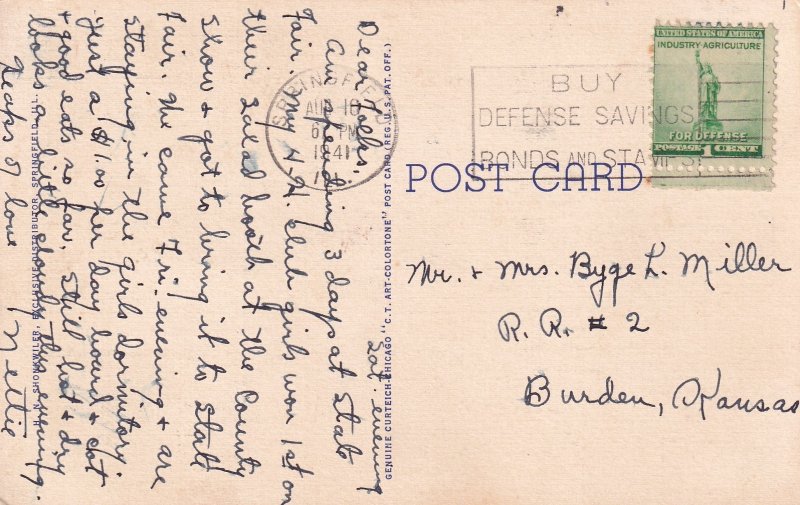 Sat. evening
Dear Folks,
Am spending 3 days at State
Fair. My 4-H. club girls won 1st on
their Salad booth at the County
Show & got to bring it to State
Fair. We came Fri. evening & are
staying in the girls dormitory.
Just a $1.00 per day board & cot
& good eats so far. Still hot & dry
looks a little cloudy this evening.
Heaps of love
Nellie
H. N. SHONKWILER, EXCLUSIVE DISTRIBUTOR, SPRINGFIELD, ILL.
GENUINE CURTEICH-CHICAGO "C.T. ART-COLORTONE" POST CARD (REG. U.S. PAT. OFF.)
SPRINGFIELD
AUG 10
6 PM
1941
BUY
DEFENSE SAVINGS
BONDS AND STAMPS
UNITED STATES OF AMERICA
INDUSTRY-AGRICULTURE
FOR DEFENSE
POSTAGE 1 CENT
POST CARD
Mr. & Mrs. Byge L. Miller
R. R. # 2
Burden, Kansas